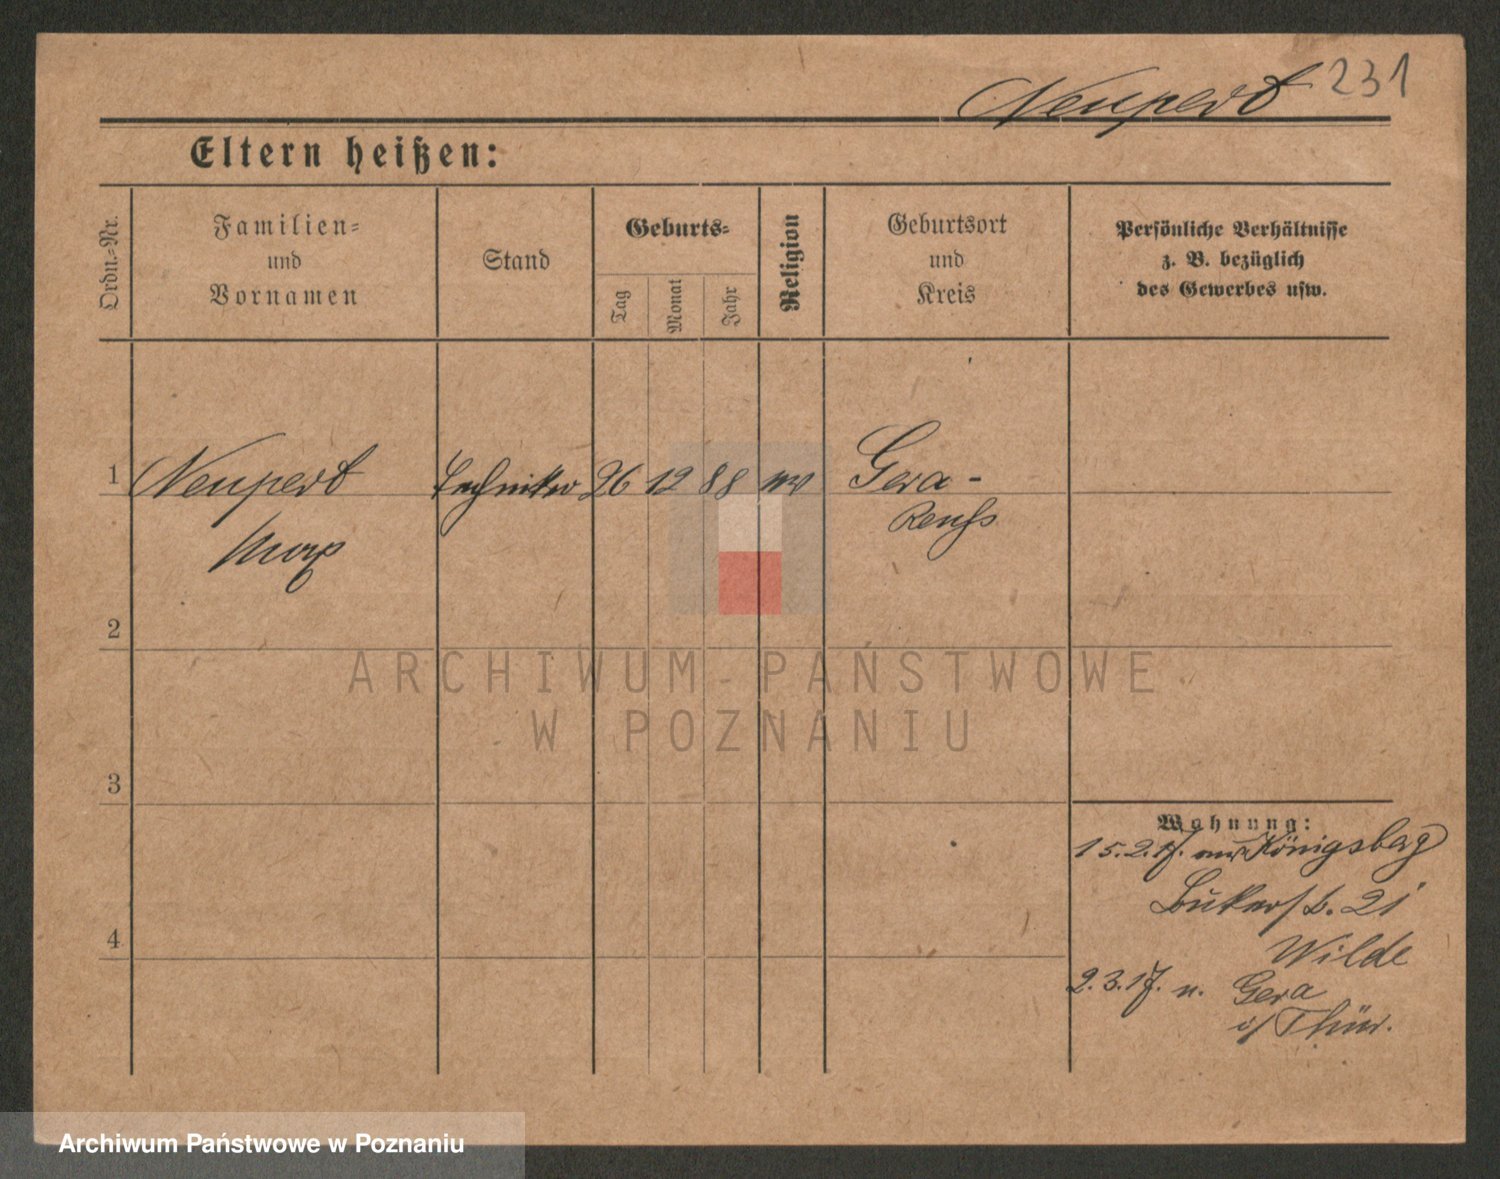 Neupert 231
Eltern heißen:
Ordn.-Nr.
Familien-
und
Vornamen
Stand
Geburts-
Tag
Monat
Jahr
Religion
Geburtsort
und
Kreis
Persönliche Verhältnisse
z. B. bezüglich
des Gewerbes usw.
1 Neupert Techniker 26 12 88 Gera-
Reuß
Max
2
3
4
ARCHIWUM PAŃSTWOWE
W POZNANIU
Wohnung:
15.2.17. Königsberg
21
Wilde
2.3.17. n. Gera
i/Thür.
Archiwum Państwowe w Poznaniu